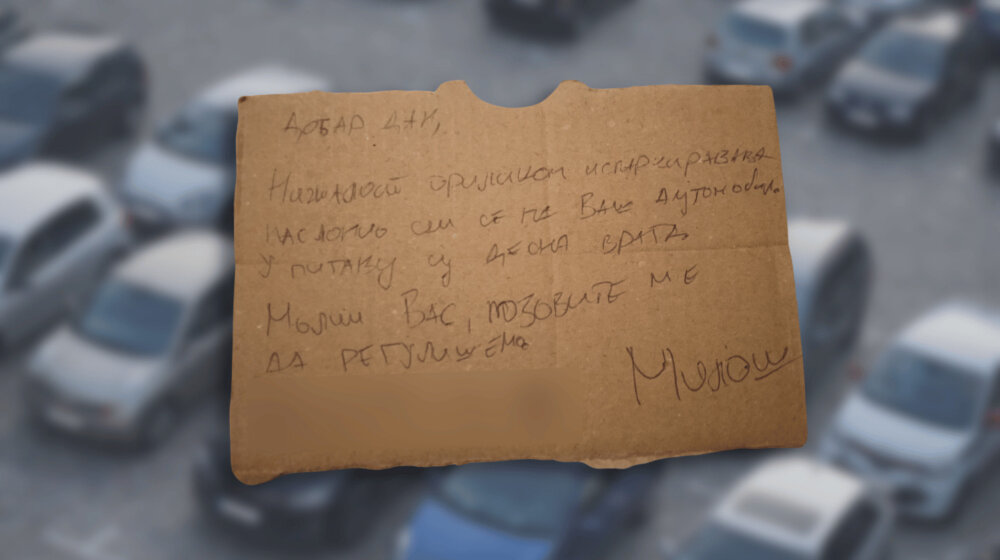 Добар дан,
Нажалост приликом испаркиравања
наслонио сам се на Ваш аутомобил.
У питању су десна врата
Молим Вас, позовите ме
да регулишемо
Милош